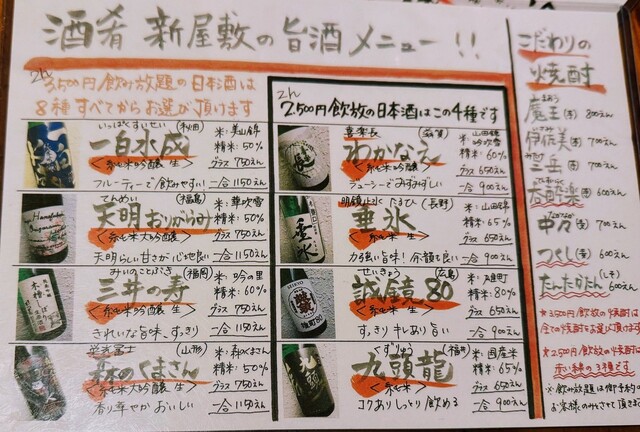 酒肴 新屋敷の旨酒メニュー!!
2h
3500円飲み放題の日本酒は
8種すべてからお選び頂けます
いっぱくすいせい (秋田)
一白水成
<純米吟醸 生>
フルーティーで飲みやすい
米:美山錦
精米:50%
グラス750えん
一合1150えん
てんめい (福島)
天明おりがらみ
<純米大吟醸 生>
天晴らしい甘さが心地良い
米:華吹雪
精米:50%
グラス750えん
一合1150えん
みいのことぶき (福岡)
三井の寿
<純米吟醸>
きれいな旨味、すっきり
米:吟の里
精米:60%
グラス750えん
一合1150えん
栄光冨士 (山形)
森のくまさん
<純米大吟醸 生>
香り華やかおいしい
米:森のくまさん
精米:50%
グラス750えん
一合1150えん
2h
2500円飲放の日本酒はこの4種です
喜楽長 (滋賀)
わかなえ
<純米吟醸 生>
ジューシーでみずみずしい
米:山田錦
吟吹雪
精米:60%
グラス650えん
一合900えん
明鏡止水 たるひ (長野)
垂氷
<純米 生>
力強い旨味!余韻も良い
米:山田錦
精米:65%
グラス650えん
一合900えん
せいきょう (広島)
誠鏡80
<純米>
すっきりキレあり旨い
米:雄町
精米:80%
グラス650えん
一合900えん
くずりゅう (福井)
九頭龍
<純米>
コクありしっとり飲める
米:国産米
精米:65%
グラス650えん
一合900えん
こだわりの
焼酎
まおう
魔王(芋)800えん
いさみ
伊佐美(芋)700えん
三岳(芋)700えん
600えん
中々(麦)700えん
つくし(麦)600えん
たんたかたん(しそ)
600えん
★3500円飲放の焼酎は
全ての焼酎をお選び頂けます
★2500円飲放の焼酎は
赤い線の3種です
※飲み放題は御予約の
お客様のみとさせて頂きます